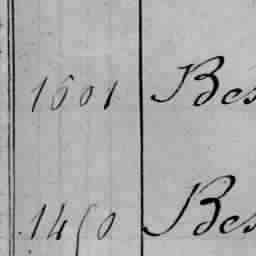 1601 Bes
1450 Bes